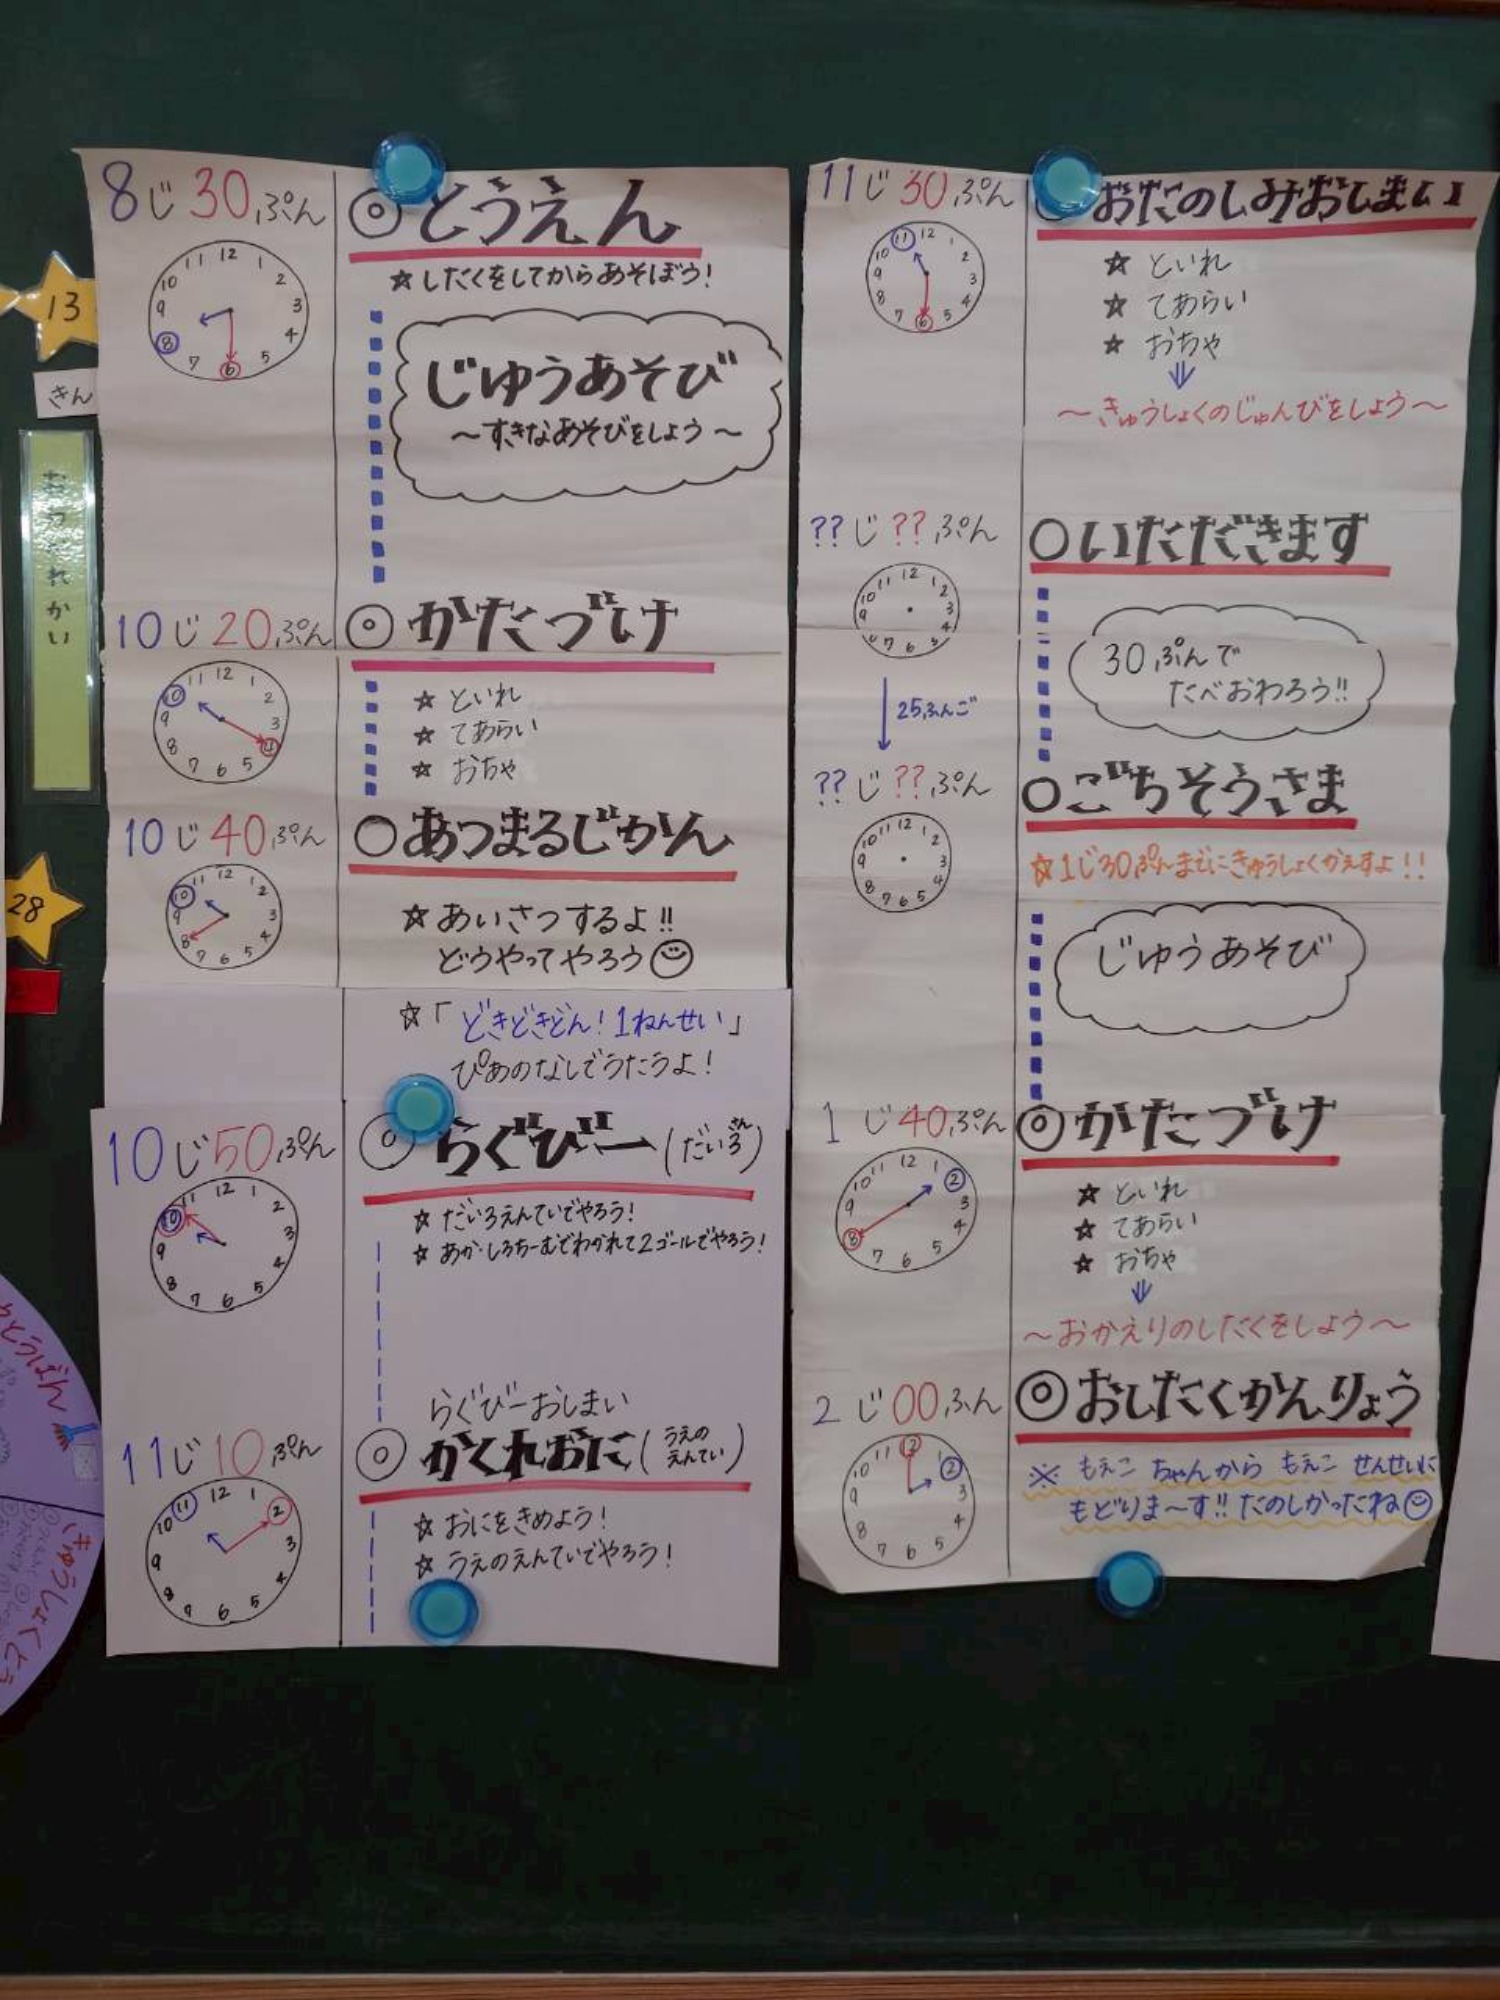 8じ30ぷん
◎とうえん
☆したくをしてからあそぼう!
じゆうあそび
～すきなあそびをしよう～
10じ20ぷん
◎かたづけ
☆といれ
☆てあらい
☆おちゃ
10じ40ぷん
○あつまるじかん
☆あいさつするよ!!
どうやってやろう
☆「どきどきどん!1ねんせい」
ぴあのなしでうたうよ!
10じ50ぷん
◎らぐびー(だいろさん)
☆だいろえんていでやろう!
☆あか・しろちーむでわかれて2ゴールでやろう!
らぐびーおしまい
11じ10ぷん
◎かくれおに(うえのえんてい)
☆おにをきめよう!
☆うえのえんていでやろう!
11じ30ぷん
◎おたのしみおしまい
☆といれ
☆てあらい
☆おちゃ
～きゅうしょくのじゅんびをしよう～
??じ??ぷん
○いただきます
30ぷんで
たべおわろう!!
25ふんご
??じ??ぷん
○ごちそうさま
☆1じ30ぷんまでにきゅうしょくかえすよ!!
じゆうあそび
1じ40ぷん
◎かたづけ
☆といれ
☆てあらい
☆おちゃ
～おかえりのしたくをしよう～
2じ00ふん
◎おしたくかんりょう
※もえこちゃんからもえこせんせいに
もどりま～す!!たのしかったね
13
きん
おわかれかい
28
とうばん
きゅうしょくとう